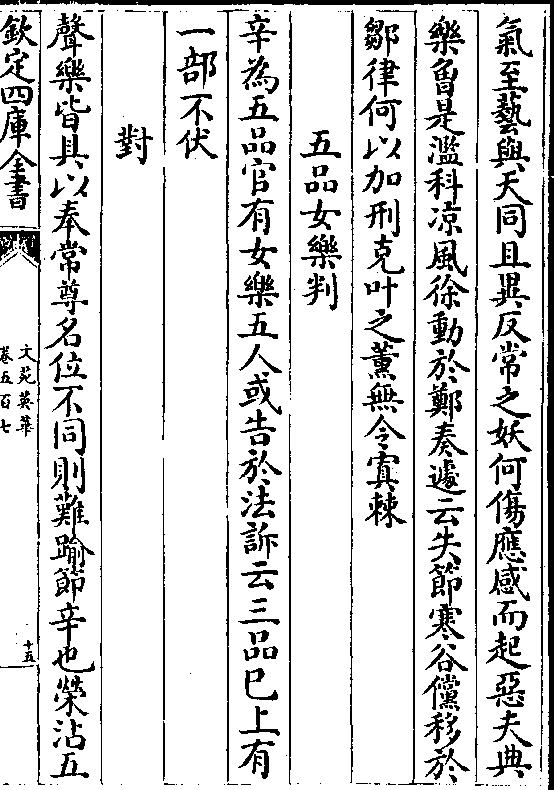 氣至藝與天同且異反常之妖何傷應感而起惡夫典
樂魯是濫科凉風徐動於鄭奏遽云失節寒谷儻移於
鄒律何以加刑克叶之薰無令寘棘
五品女樂判
辛為五品官有女樂五人或告於法訴云三品已上有
一部不伏
對
聲樂皆具以奉常尊名位不同則難踰節辛也榮沾五
欽定四庫全書
文苑英華
卷五百七
十五